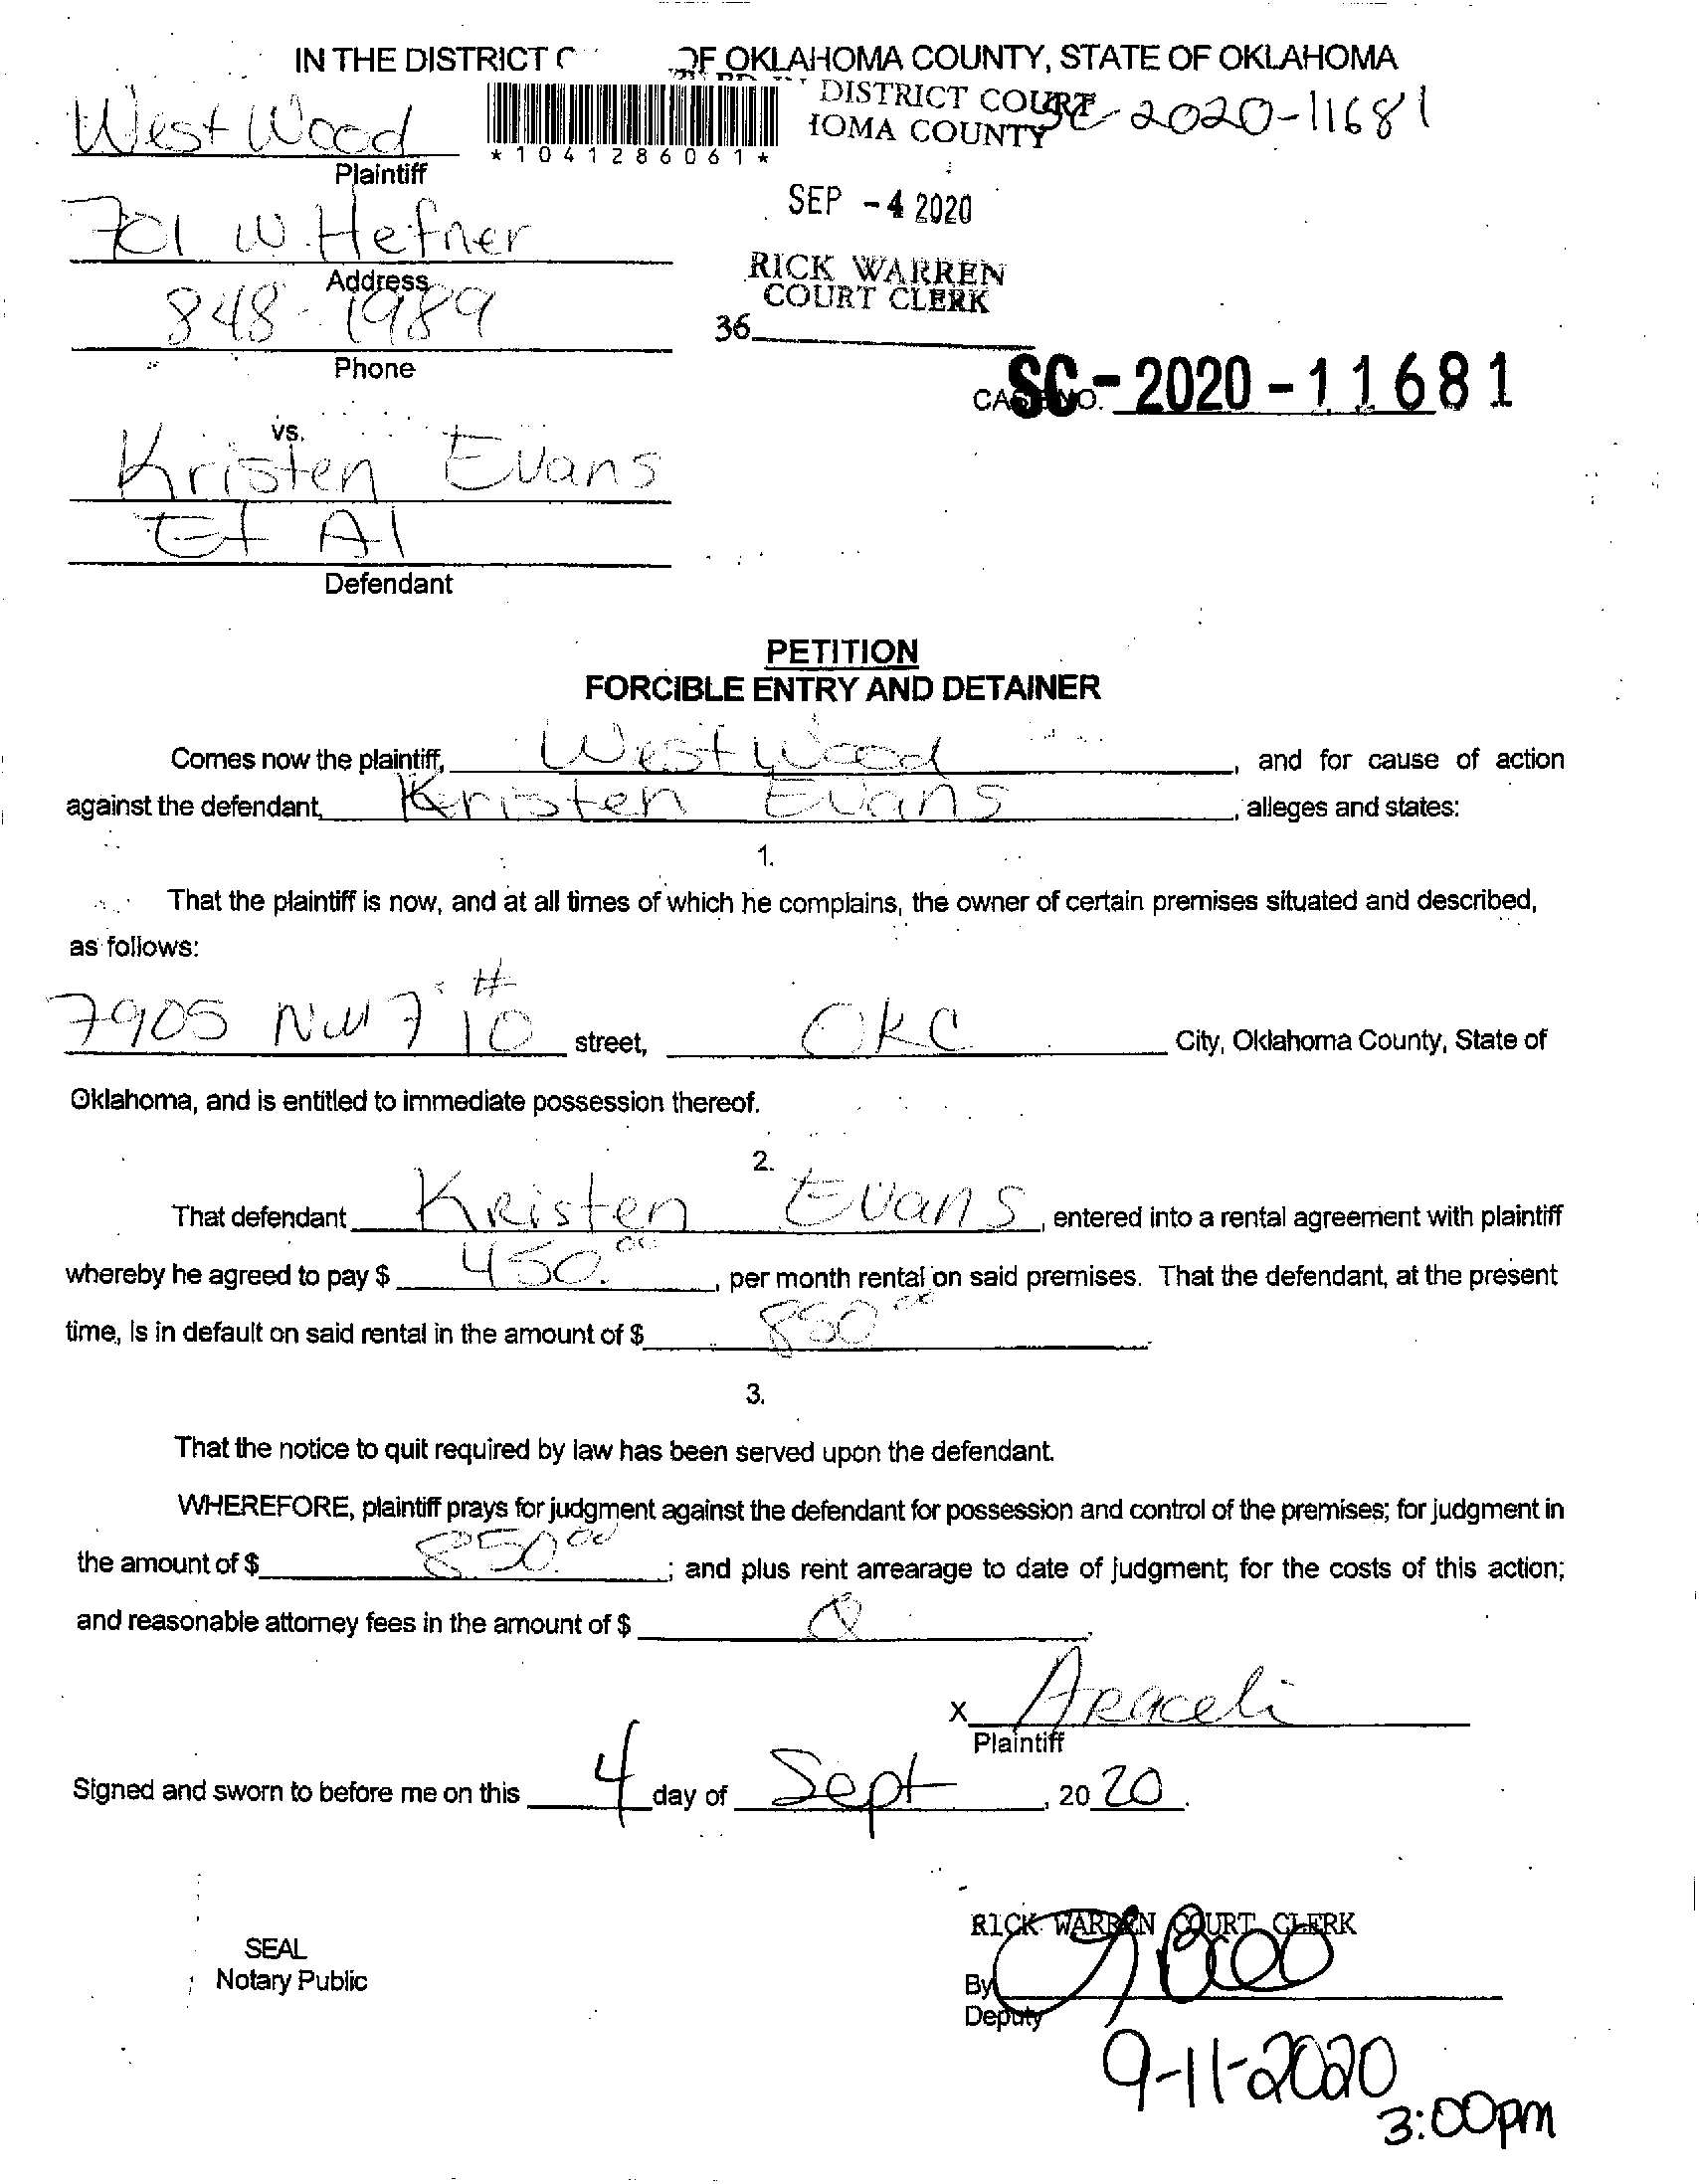 IN THE DISTRICT C OF OKLAHOMA COUNTY, STATE OF OKLAHOMA
DISTRICT COURT
SC-2020-11681
West Wood
IOMA COUNTY
*1041286061*
Plaintiff
SEP -4 2020
701 W. Hefner
Address
RICK WARREN
COURT CLERK
848-1989
36
Phone
CASE NO. SC-2020-11681
vs.
Kristen Evans
Et Al
Defendant
PETITION
FORCIBLE ENTRY AND DETAINER
Comes now the plaintiff, West Wood, and for cause of action
against the defendant, Kristen Evans, alleges and states:
1.
That the plaintiff is now, and at all times of which he complains, the owner of certain premises situated and described,
as follows:
7905 NW 7 #10 street, OKC City, Oklahoma County, State of
Oklahoma, and is entitled to immediate possession thereof.
2.
That defendant Kristen Evans, entered into a rental agreement with plaintiff
whereby he agreed to pay $ 450.00, per month rental on said premises. That the defendant, at the present
time, is in default on said rental in the amount of $ 850 00.
3.
That the notice to quit required by law has been served upon the defendant.
WHEREFORE, plaintiff prays for judgment against the defendant for possession and control of the premises; for judgment in
the amount of $ 850.00; and plus rent arrearage to date of judgment; for the costs of this action;
and reasonable attorney fees in the amount of $
X Araceli
Plaintiff
Signed and sworn to before me on this 4 day of Sept, 2020.
RICK WARREN COURT CLERK
SEAL
Notary Public
By
Deputy
9-11-2020
3:00pm